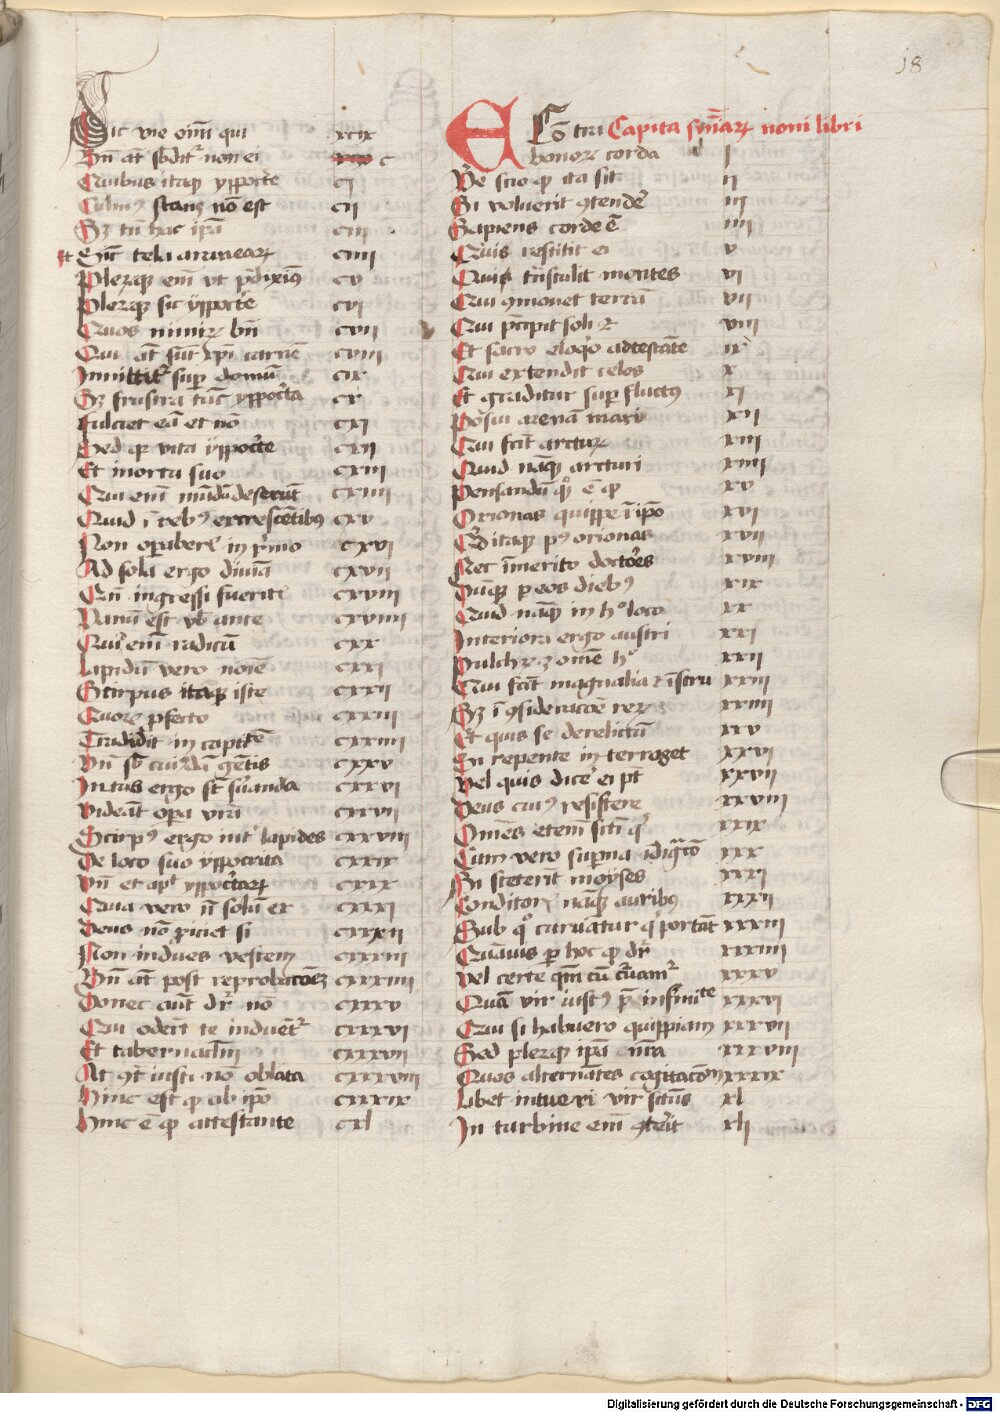 18
Sic vie oīm qui xcix
Vñ at̄ sbdit² non ei c
Quibus itaqȝ ypocrite cj
Culmꝰ stans nō est cij
Sȝ tn̄ hac ipā ciij
et Sic̄ tela aranearꝝ ciiij
Plerqȝ em̄ vt p̄diximꝰ cv
Plerqȝ sic ypocrite cvj
Quos nimirꝝ bn̄ cvij
Qui at̄ sūt xp̄i carnē cviij
Innittit² sup domū cix
Sȝ frustra tūc ypocͥta cx
Fulciet eā et nō cxj
Sed qꝫ vita ypocͥte cxij
Et mortu suo cxiij
Qui em̄ mūdū deserūt cxiiij
Quid ī rebꝰ excrescētibꝰ cxv
Non oꝑaberꝭ in pͥmo cxvj
Ad solā ergo diuīā cxvij
Cū ingressi fuerit cxviij
Vanū est vobͥ ante cxviiij
Qui em̄ radicū cxx
Lapidū vero noīe cxxj
Scirpus itaqȝ iste cxxij
Quore pfecto cxxiij
Tradidit in captͥtē cxxiiij
Vñ sb cuiusdā gētis cxxv
Intus ergo sūt suanda cxxvj
Videāt oꝑa viri cxxvij
Scirpꝰ ergo int² lapides cxxviij
De loco suo ypocrita cxxix
Vñ et apͭ ypocͥtarꝝ cxxx
Quia vero n̄ solū ex cxxxj
Deus nō ꝓiciet si cxxxij
Non indues vestem cxxxiij
Vñ at̄ post reprobatōeȝ cxxxiiij
Donec aūt dr̄ nō cxxxv
Qui oderūt te induēt² cxxxvj
Et tabernaclm̄ cxxxvij
At ꝯt̄ iusti nō oblata cxxxviij
Hinc est qꝫ ab ipō cxxxix
Hinc ē qꝫ attestante cxl
Capita sūmarꝝ noni libri
honorꝭ corda j
Ve scio qꝫ ita sit ij
Si voluerit ꝯtendeͤ iij
Sapiens corde ē iiij
Quis restitit ei v
Quis trāstulit montes vj
Qui ꝯmouet terrā vij
Qui p̄cipit soli ⁊ viij
Et sacro eloqͦo adtestāte ix
Qui extendit celos x
Et graditur sup fluctꝰ xj
Posui arenā mari xij
Qui fcīt arcturꝝ xiij
Quid nāqȝ arcturi xiiij
Pensandū qͥ ē qꝫ xv
Orionas quippe ī ipō xvj
Qd itaqȝ pꝰ orionas xvij
Nec īmerito doctoͤes xviij
Dūqȝ p eos diebꝰ xix
Quid naqȝ in hͦ loco xx
Interiora ergo austri xxj
Pulchrꝝ ⁊ omē hͦ xxij
Qui fcīt magnalia ⁊ īscru xxiij
Sȝ ī ꝯsideracōe rerꝝ xxiiij
Et quis se derelictū xxv
Si repente interroget xxvj
Vel quis dicet ei xxvij
Deus cuiꝰ resistere xxviij
Omēs etem̄ xxix
Cum vero suprna xxx
Si steterit moyses xxxj
Conditorꝭ nāqȝ auribus xxxij
Sub qͦ curuātur qͥ portāt xxxiij
Quāuis p hoc qꝫ dr̄ xxxiiij
Vel certe qm̄ cū xxxv
Quā vir iustꝰ xxxvj
Qui si habuero quippiam xxxvij
Sed plerqȝ ipā xxxviij
Quos alternātes cogitacōes xxxix
Libet intueri vir sctūs xl
In turbine em̄ ꝯterit xlj
Digitalisierung gefördert durch die Deutsche Forschungsgemeinschaft - DFG